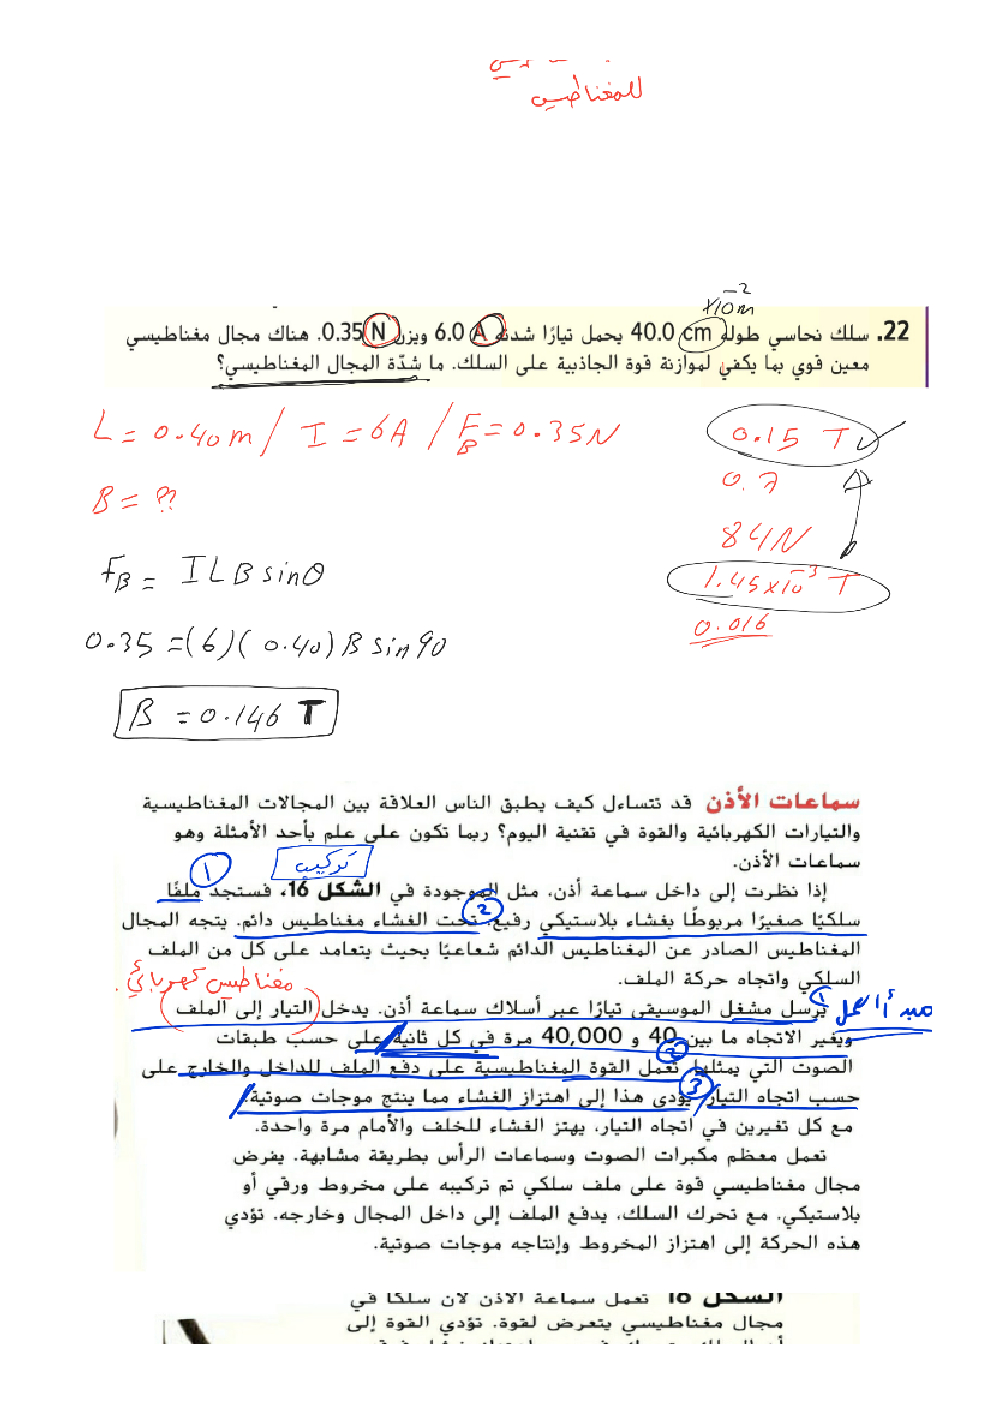 للمغناطيس
×10⁻² m
22. سلك نحاسي طوله 40.0 cm يحمل تيارًا شدته 6.0 A ويزن 0.35 N. هناك مجال مغناطيسي
معين قوي بما يكفي لموازنة قوة الجاذبية على السلك. ما شدّة المجال المغناطيسي؟
L = 0.40 m / I = 6A / F_B = 0.35 N
0.15 T
B = ??
0.7
84 N
F_B = I L B sinθ
1.45×10⁻³ T
0.35 = (6)(0.40) B sin 90
0.016
B = 0.146 T
سماعات الأذن قد تتساءل كيف يطبق الناس العلاقة بين المجالات المغناطيسية
والتيارات الكهربائية والقوة في تقنية اليوم؟ ربما تكون على علم بأحد الأمثلة وهو
سماعات الأذن.
تركيب
1
إذا نظرت إلى داخل سماعة أذن، مثل الموجودة في الشكل 16، فستجد ملفًا
2
سلكيًا صغيرًا مربوطًا بغشاء بلاستيكي رفيع. تحت الغشاء مغناطيس دائم. يتجه المجال
المغناطيس الصادر عن المغناطيس الدائم شعاعيًا بحيث يتعامد على كل من الملف
السلكي واتجاه حركة الملف.
مغناطيس كهربائي.
1
يرسل مشغل الموسيقى تيارًا عبر أسلاك سماعة أذن. يدخل التيار إلى الملف
ويغير الاتجاه ما بين 40 و 40,000 مرة في كل ثانية على حسب طبقات
2
الصوت التي يمثلها. تعمل القوة المغناطيسية على دفع الملف للداخل والخارج على
3
حسب اتجاه التيار. يؤدي هذا إلى اهتزاز الغشاء مما ينتج موجات صوتية.
مع كل تغيرين في اتجاه التيار، يهتز الغشاء للخلف والأمام مرة واحدة.
تعمل معظم مكبرات الصوت وسماعات الرأس بطريقة مشابهة. يفرض
مجال مغناطيسي قوة على ملف سلكي تم تركيبه على مخروط ورقي أو
بلاستيكي. مع تحرك السلك، يدفع الملف إلى داخل المجال وخارجه. تؤدي
هذه الحركة إلى اهتزاز المخروط وإنتاجه موجات صوتية.
الشكل 16 تعمل سماعة الأذن لأن سلكًا في
مجال مغناطيسي يتعرض لقوة. تؤدي القوة إلى